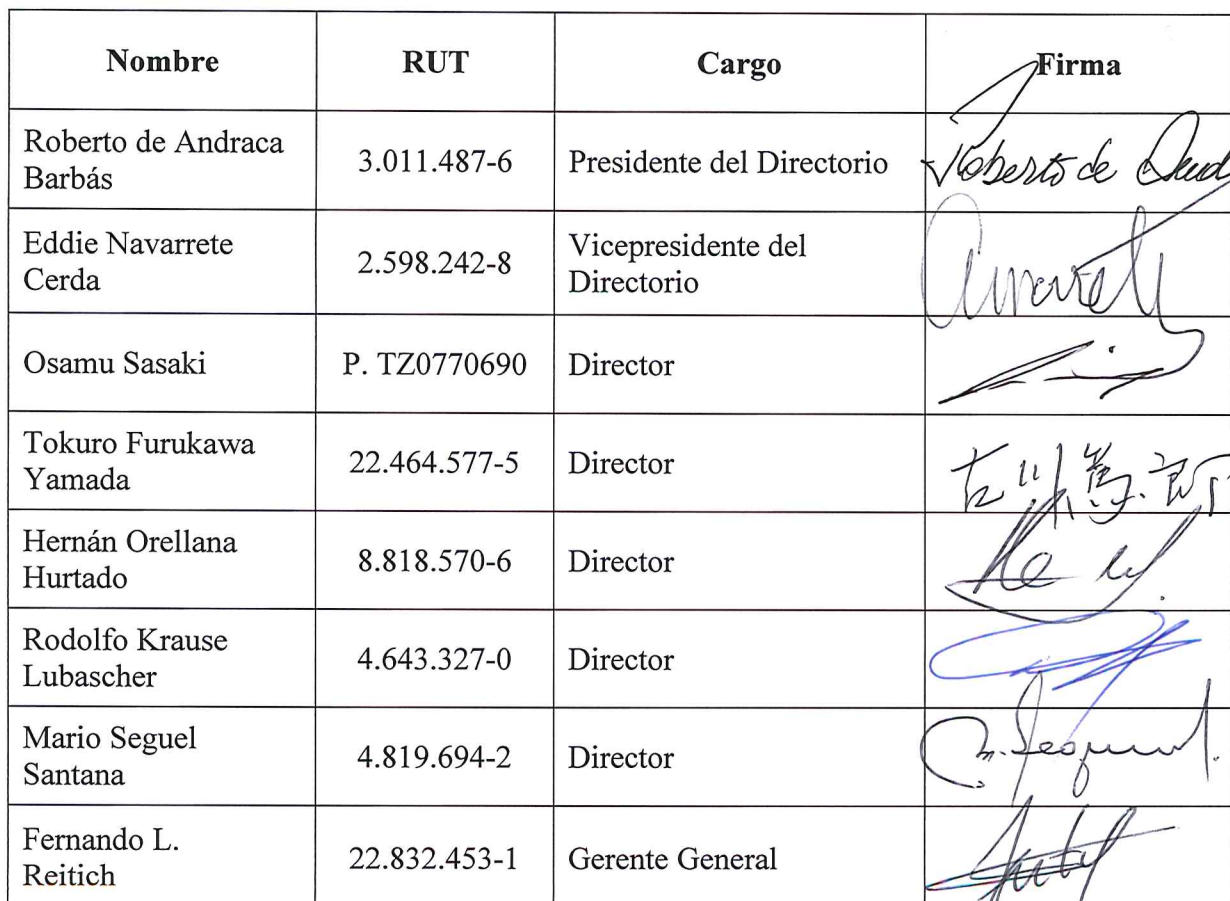 Nombre RUT Cargo Firma
Roberto de Andraca
Barbás
3.011.487-6
Presidente del Directorio
Roberto de
Eddie Navarrete
Cerda
2.598.242-8
Vicepresidente del
Directorio
Osamu Sasaki
P. TZ0770690
Director
Tokuro Furukawa
Yamada
22.464.577-5
Director
Hernán Orellana
Hurtado
8.818.570-6
Director
Rodolfo Krause
Lubascher
4.643.327-0
Director
Mario Seguel
Santana
4.819.694-2
Director
Fernando L.
Reitich
22.832.453-1
Gerente General